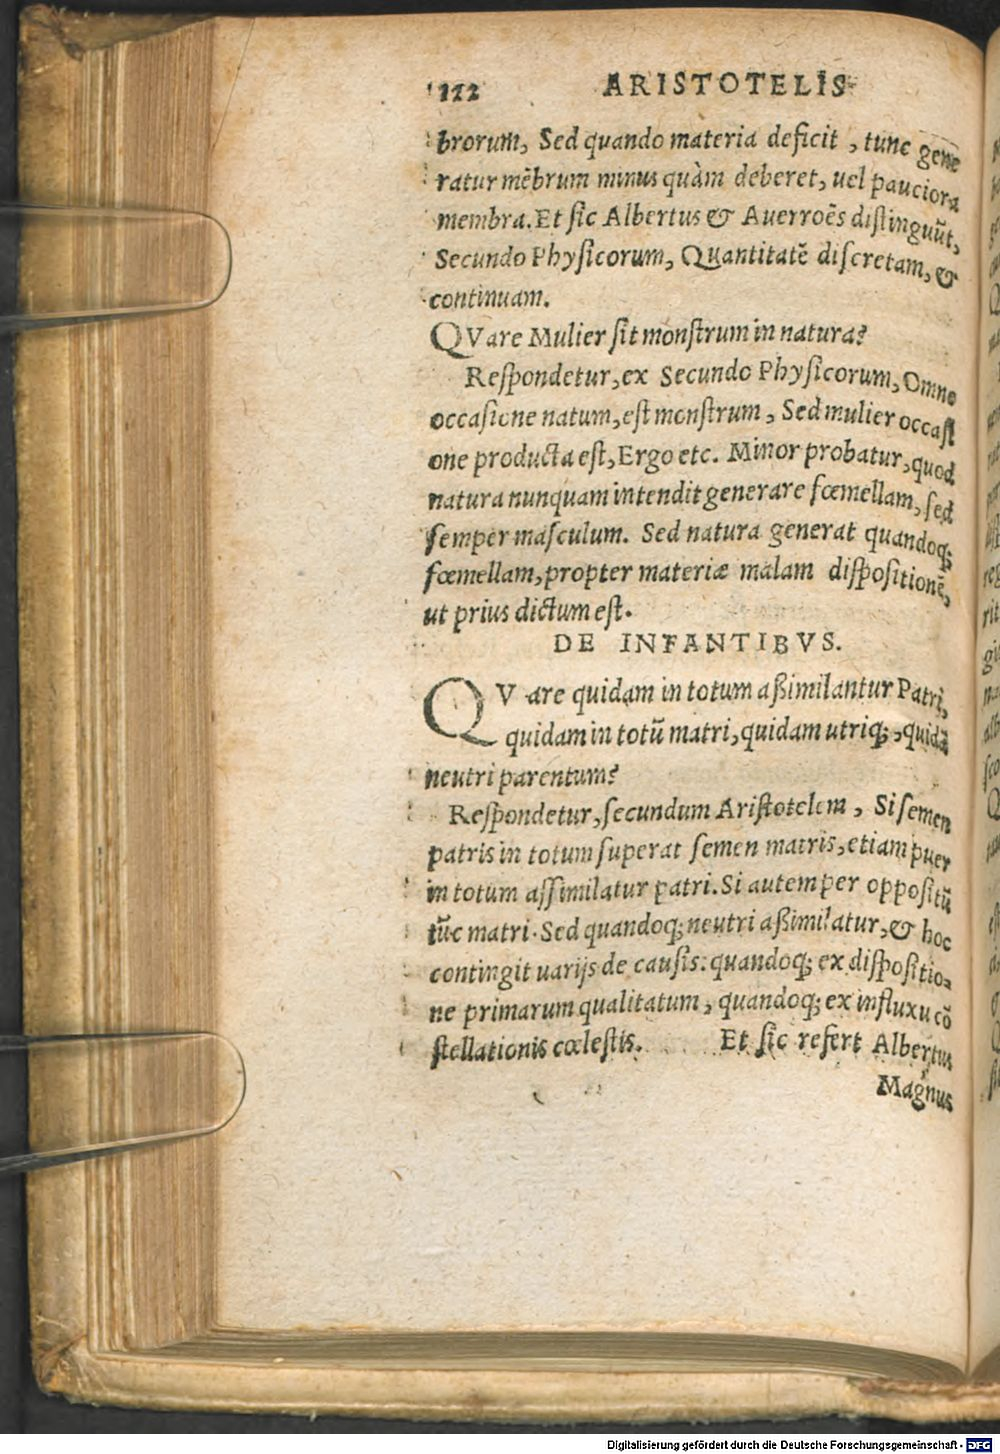 112 ARISTOTELIS
brorum, Sed quando materia deficit, tunc gene
ratur mēbrum minus quàm deberet, uel pauciora
membra. Et sic Albertus & Auerroēs distinguūt,
Secundo Physicorum, Quantitatē discretam, &
continuam.
QVare Mulier sit monstrum in natura?
Respondetur, ex Secundo Physicorum, Omne
occasione natum, est monstrum, Sed mulier occasi
one producta est, Ergo etc. Minor probatur, quod
natura nunquam intendit generare fœmellam, sed
semper masculum. Sed natura generat quandoq;
fœmellam, propter materiæ malam dispositionē,
ut prius dictum est.
DE INFANTIBVS.
QVare quidam in totum aßimilantur Patri,
quidam in totū matri, quidam utriq;, quidā
neutri parentum?
Respondetur, secundum Aristotelem, Si semen
patris in totum superat semen matris, etiam puer
in totum assimilatur patri. Si autem per oppositū
tūc matri. Sed quandoq; neutri aßimilatur, & hoc
contingit uarijs de causis: quandoq; ex dispositio-
ne primarum qualitatum, quandoq; ex influxu cō
stellationis cœlestis. Et sic refert Albertus
Magnus
Digitalisierung gefördert durch die Deutsche Forschungsgemeinschaft - DFG